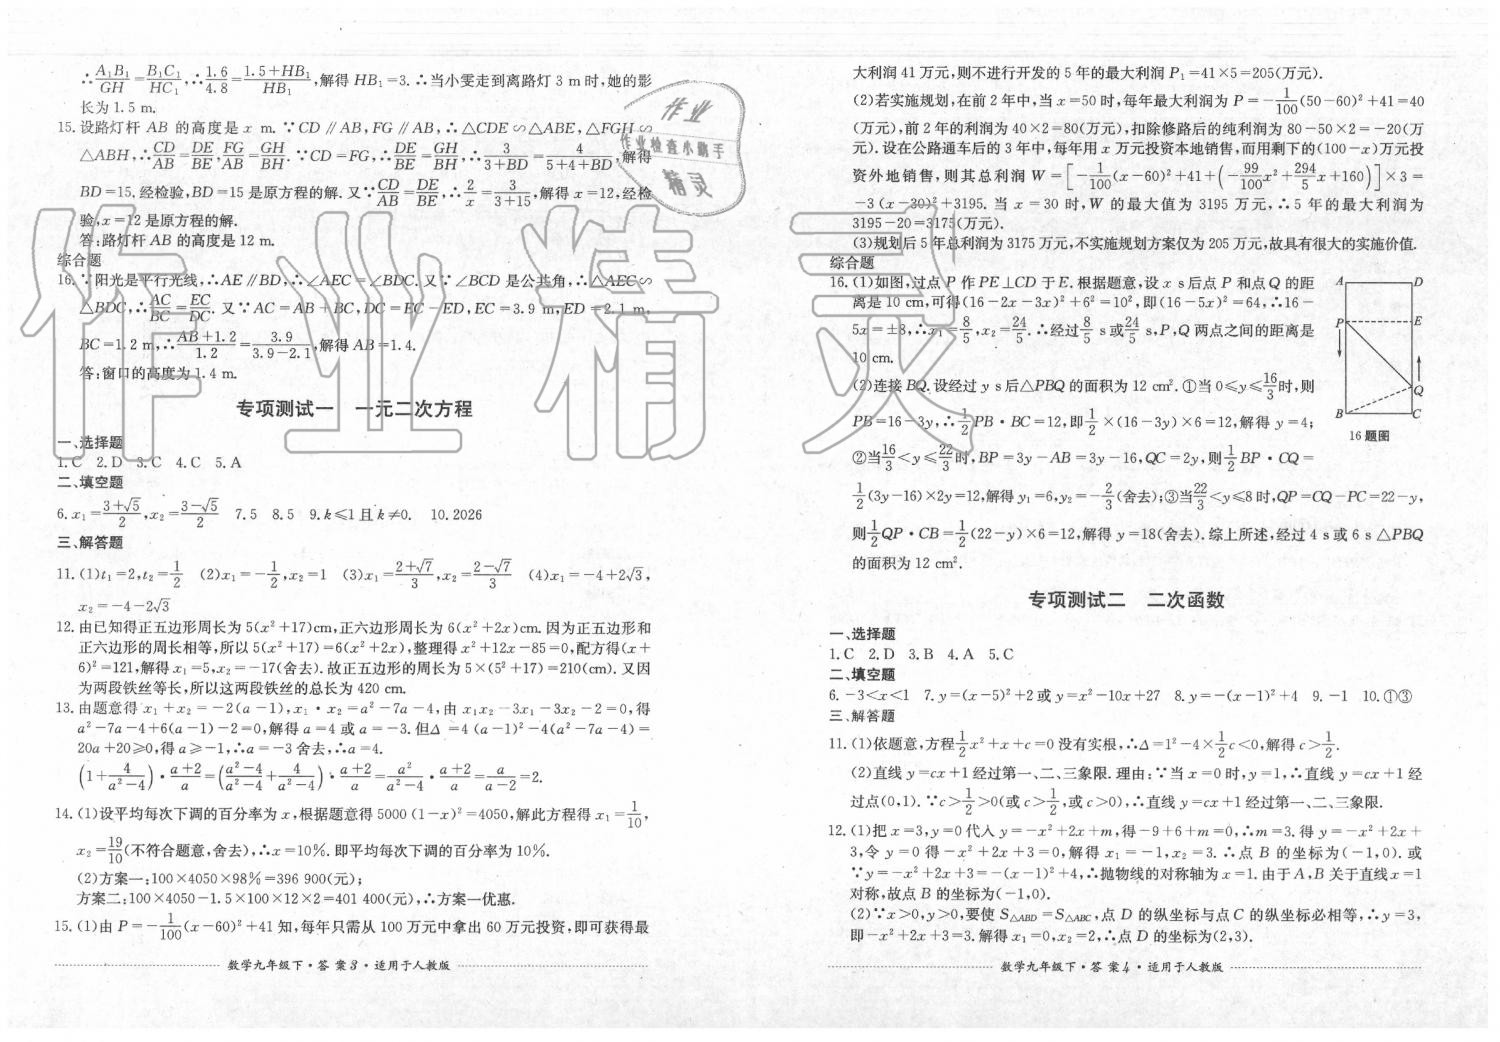 ∴A₁B₁/GH=B₁C₁/HC₁,∴1.6/4.8=(1.5+HB₁)/HB₁,解得 HB₁=3.∴当小雯走到离路灯 3 m 时,她的影
长为 1.5 m.
15. 设路灯杆 AB 的高度是 x m.∵CD∥AB,FG∥AB,∴△CDE∽△ABE,△FGH∽
△ABH,∴CD/AB=DE/BE,FG/AB=GH/BH.∵CD=FG,∴DE/BE=GH/BH,∴3/(3+BD)=4/(5+4+BD),解得
BD=15.经检验,BD=15 是原方程的解.又∵CD/AB=DE/BE,∴2/x=3/(3+15),解得 x=12,经检
验,x=12 是原方程的解.
答:路灯杆 AB 的高度是 12 m.
综合题
16.∵阳光是平行光线,∴AE∥BD,∴∠AEC=∠BDC.又∵∠BCD 是公共角,∴△AEC∽
△BDC,∴AC/BC=EC/DC.又∵AC=AB+BC,DC=EC-ED,EC=3.9 m,ED=2.1 m,
BC=1.2 m,∴(AB+1.2)/1.2=3.9/(3.9-2.1),解得 AB=1.4.
答:窗口的高度为 1.4 m.
专项测试一 一元二次方程
一、选择题
1.C 2.D 3.C 4.C 5.A
二、填空题
6.x₁=(3+√5)/2,x₂=(3-√5)/2 7.5 8.5 9.k≤1 且 k≠0. 10.2026
三、解答题
11.(1)t₁=2,t₂=1/2 (2)x₁=-1/2,x₂=1 (3)x₁=(2+√7)/3,x₂=(2-√7)/3 (4)x₁=-4+2√3,
x₂=-4-2√3
12.由已知得正五边形周长为 5(x²+17)cm,正六边形周长为 6(x²+2x)cm.因为正五边形和
正六边形的周长相等,所以 5(x²+17)=6(x²+2x),整理得 x²+12x-85=0,配方得(x+
6)²=121,解得 x₁=5,x₂=-17(舍去).故正五边形的周长为 5×(5²+17)=210(cm).又因
为两段铁丝等长,所以这两段铁丝的总长为 420 cm.
13.由题意得 x₁+x₂=-2(a-1),x₁·x₂=a²-7a-4,由 x₁x₂-3x₁-3x₂-2=0,得
a²-7a-4+6(a-1)-2=0,解得 a=4 或 a=-3.但Δ=4(a-1)²-4(a²-7a-4)=
20a+20≥0,得 a≥-1,∴a=-3 舍去,∴a=4.
(1+4/(a²-4))·(a+2)/a=((a²-4)/(a²-4)+4/(a²-4))·(a+2)/a=a²/(a²-4)·(a+2)/a=a/(a-2)=2.
14.(1)设平均每次下调的百分率为 x,根据题意得 5000(1-x)²=4050,解此方程得 x₁=1/10,
x₂=19/10(不符合题意,舍去),∴x=10%.即平均每次下调的百分率为 10%.
(2)方案一:100×4050×98%=396 900(元);
方案二:100×4050-1.5×100×12×2=401 400(元),∴方案一优惠.
15.(1)由 P=-1/100(x-60)²+41 知,每年只需从 100 万元中拿出 60 万元投资,即可获得最
数学九年级下·答案3·适用于人教版
大利润 41 万元,则不进行开发的 5 年的最大利润 P₁=41×5=205(万元).
(2)若实施规划,在前 2 年中,当 x=50 时,每年最大利润为 P=-1/100(50-60)²+41=40
(万元),前 2 年的利润为 40×2=80(万元),扣除修路后的纯利润为 80-50×2=-20(万
元).设在公路通车后的 3 年中,每年用 x 万元投资本地销售,而用剩下的(100-x)万元投
资外地销售,则其总利润 W=[-1/100(x-60)²+41+(-99/100x²+294/5x+160)]×3=
-3(x-30)²+3195.当 x=30 时,W 的最大值为 3195 万元,∴5 年的最大利润为
3195-20=3175(万元).
(3)规划后 5 年总利润为 3175 万元,不实施规划方案仅为 205 万元,故具有很大的实施价值.
综合题
16.(1)如图,过点 P 作 PE⊥CD 于 E.根据题意,设 x s 后点 P 和点 Q 的距
离是 10 cm,可得(16-2x-3x)²+6²=10²,即(16-5x)²=64,∴16-
5x=±8,∴x₁=8/5,x₂=24/5.∴经过8/5 s 或24/5 s,P,Q 两点之间的距离是
10 cm.
(2)连接 BQ.设经过 y s 后△PBQ 的面积为 12 cm².①当 0≤y≤16/3时,则
PB=16-3y,∴1/2PB·BC=12,即1/2×(16-3y)×6=12,解得 y=4;
②当16/3<y≤22/3时,BP=3y-AB=3y-16,QC=2y,则1/2BP·CQ=
1/2(3y-16)×2y=12,解得 y₁=6,y₂=-2/3(舍去);③当22/3<y≤8 时,QP=CQ-PC=22-y,
则1/2QP·CB=1/2(22-y)×6=12,解得 y=18(舍去).综上所述,经过 4 s 或 6 s △PBQ
的面积为 12 cm².
A D
P E
Q
B C
16 题图
专项测试二 二次函数
一、选择题
1.C 2.D 3.B 4.A 5.C
二、填空题
6.-3<x<1 7.y=(x-5)²+2 或 y=x²-10x+27 8.y=-(x-1)²+4 9.-1 10.①③
三、解答题
11.(1)依题意,方程1/2x²+x+c=0 没有实根,∴Δ=1²-4×1/2c<0,解得 c>1/2.
(2)直线 y=cx+1 经过第一、二、三象限.理由:∵当 x=0 时,y=1,∴直线 y=cx+1 经
过点(0,1).∵c>1/2>0(或 c>1/2,或 c>0),∴直线 y=cx+1 经过第一、二、三象限.
12.(1)把 x=3,y=0 代入 y=-x²+2x+m,得-9+6+m=0,∴m=3.得 y=-x²+2x+
3,令 y=0 得-x²+2x+3=0,解得 x₁=-1,x₂=3.∴点 B 的坐标为(-1,0).或
∵y=-x²+2x+3=-(x-1)²+4,∴抛物线的对称轴为 x=1.由于 A,B 关于直线 x=1
对称,故点 B 的坐标为(-1,0).
(2)∵x>0,y>0,要使 S△ABD=S△ABC,点 D 的纵坐标与点 C 的纵坐标必相等,∴y=3,
即-x²+2x+3=3.解得 x₁=0,x₂=2,∴点 D 的坐标为(2,3).
数学九年级下·答案4·适用于人教版
作业精灵
作业
作业检查小助手
精灵